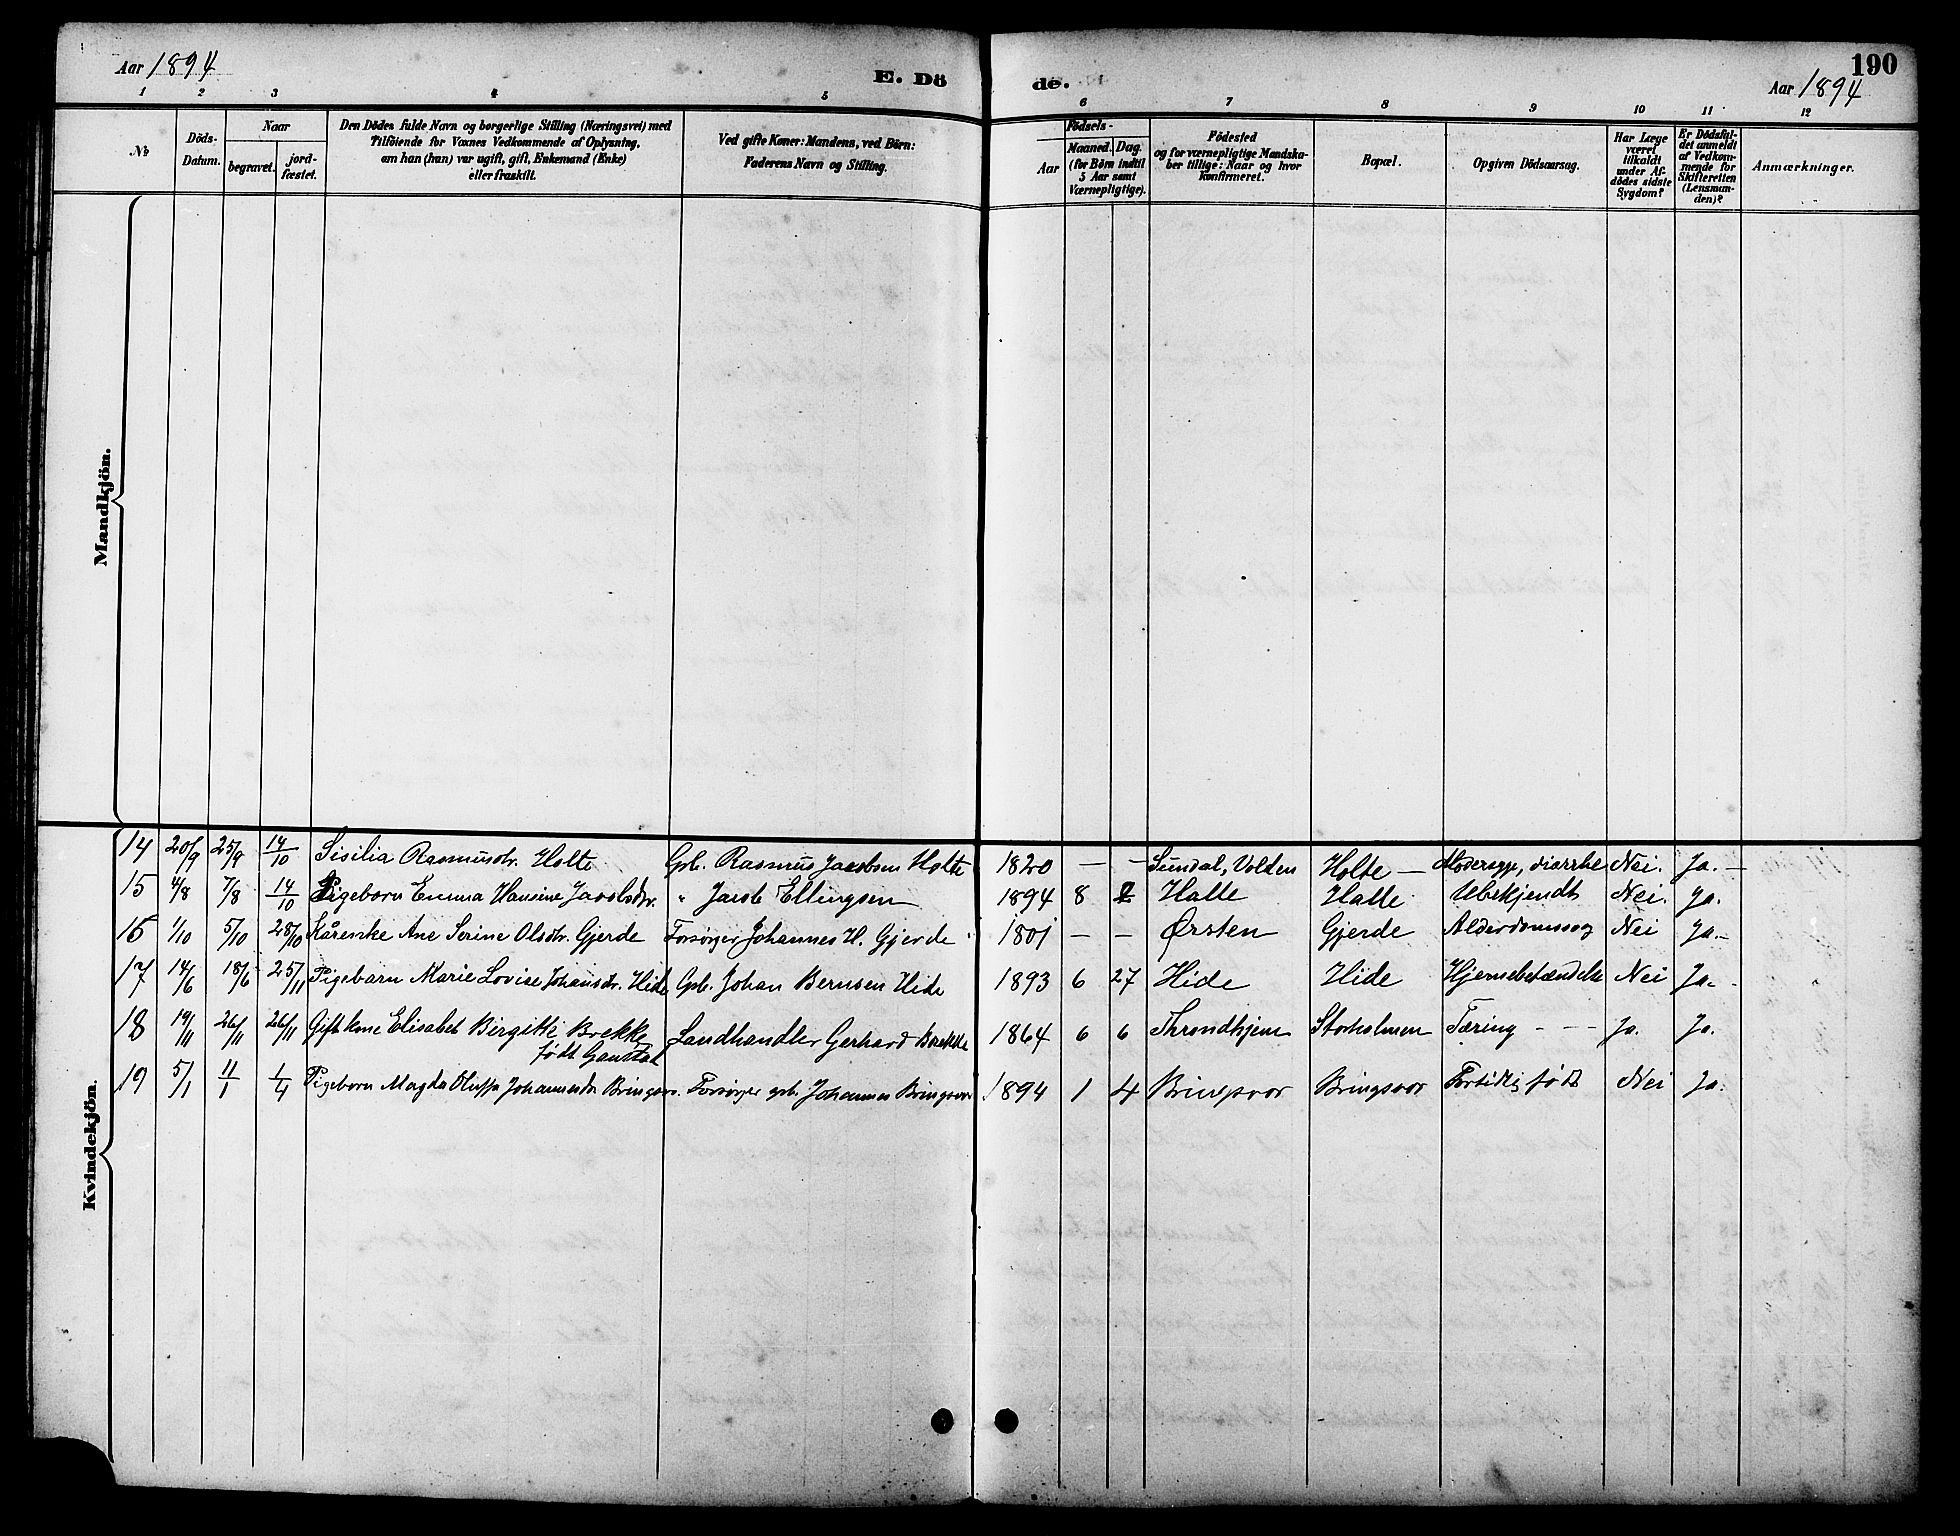 Aar 1894 E. Dö de. Aar 1894 190
1 2 3 4 5 6 7 8 9 10 11 12
No
Döds-Datum.
Naar
begravet.
jord-fæstet.
Den Dödes fulde Navn og borgerlige Stilling (Næringsvei) med
Tilföiende for Voxnes Vedkommende af Oplysning,
om han (hun) var ugift, gift, Enkemand (Enke)
eller fraskilt.
Ved gifte Koner: Mandens, ved Börn:
Faderens Navn og Stilling.
Födsels-
Aar
Maaned. Dag.
(for Börn indtil
5 Aar samt
Værnepligtige).
Födested
og for værnepligtige Mandska-
ber tillige: Naar og hvor
konfirmeret.
Bopæl.
Opgiven Dödsaarsag.
Har Læge
været
tilkaldt
under Af-
dödes sidste
Sygdom?
Er Dödsfal-
det anmeldt
af Vedkom-
mende for
Skifteretten
(Lensman-
den)?
Anmærkninger.
Mandkjön.
Kvindekjön.
14 20/9 25/9 14/10 Sisilia Rasmusdr. Holte Gpb. Rasmus Jacobsen Holte 1820 — — Sundal, Volden Holte — diarrhe Nei. Ja. —
15 4/8 7/8 14/10 Pigebarn Emma Hansine Jacobsdr. " Jacob Ellingsen 1894 8 Halle Halle Ubekjendt Nei. Ja.
16 1/10 5/10 28/10 Kårenke Ane Serine Olsdr. Gjerde Forsörger Johannes H. Gjerde 1801 — — Ørsten Gjerde Alderdomssvag Nei Ja. -
17 14/6 18/6 25/11 Pigebarn Marie Lovise Johansdr. Hide Gpb. Johan Bernsen Hide 1893 6 27 Hide Hide Hjernebetændelse Nei Ja. -
18 19/11 26/11 26/11 Gift kone Elisabet Birgitte Brekke Landhandler Gerhard Brekke 1864 6 6 Throndhjem Storholmen Tæring - - - Ja. Ja.
født Ganstad
19 5/1 11/1 1/4 Pigebarn Magda Oluffa Johannesdr. Bringsvor. Forsörger gpb. Johannes Bringsvor 1894 1 4 Bringsvor Bringsvor Fortidlig født Nei Ja.